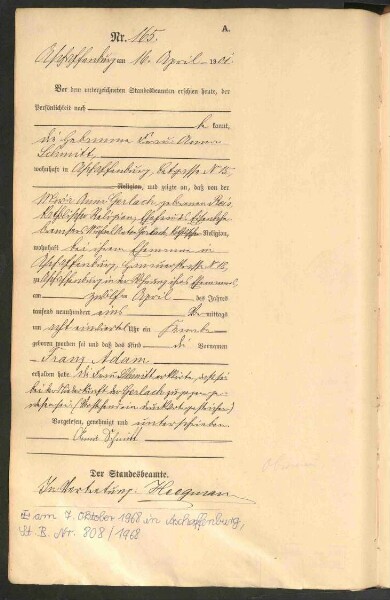 A.
Nr. 165.
Aschaffenburg am 16. April 1901
Vor dem unterzeichneten Standesbeamten erschien heute, der
Persönlichkeit nach
kannt,
die Hebamme Frau Anna
Schmitt
wohnhaft in Aschaffenburg,
Religion, und zeigte an, daß von der
Gerlach, geborenen
Katholischer Religion, Ehefrau des
Gerlach, Religion,
wohnhaft bei ihrem Ehemanne in
Aschaffenburg,
zu Aschaffenburg in der Wohnung ihres Ehemannes,
am zwölften April des Jahres
tausend neunhundert eins Vormittags
um acht einviertel Uhr ein Knabe
geboren worden sei und daß das Kind die Vornamen
Franz Adam
erhalten habe. Die Frau Schmitt erklärte, daß sie
bei der Niederkunft der Gerlach zugegen ge-
wesen sei. (Vorstehend ein Druckwort gestrichen)
Vorgelesen, genehmigt und unterschrieben
Anna Schmitt
Der Standesbeamte.
In Vertretung: Heegmann
am 7. Oktober 1968 in Aschaffenburg,
St. B. Nr. 808/1968